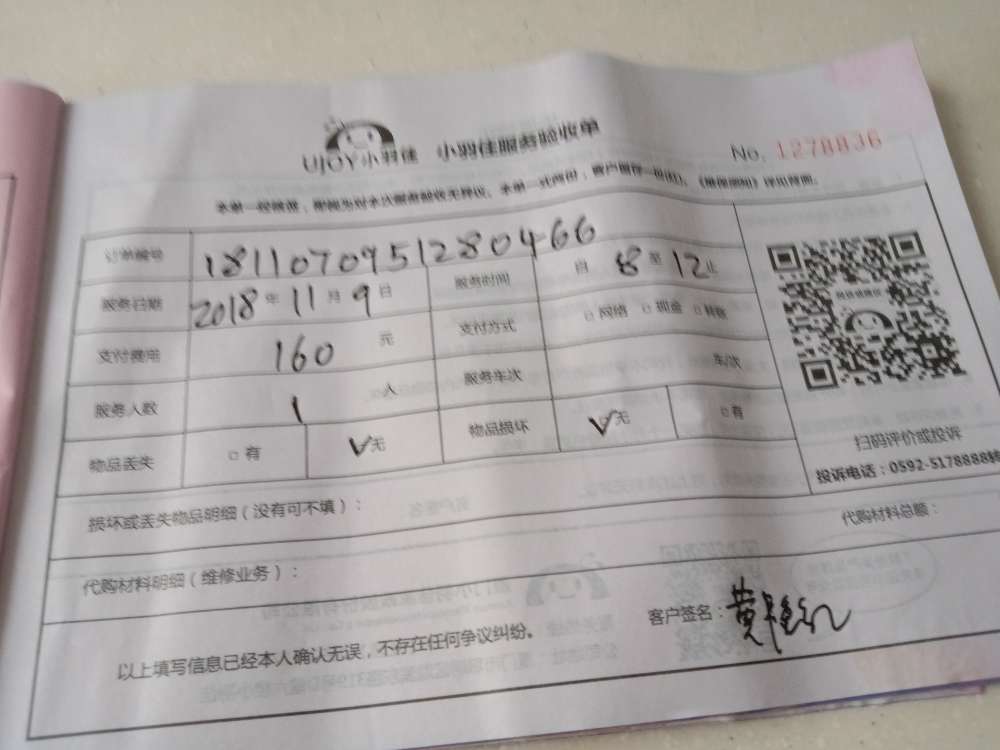 UJOY小羽佳 小羽佳服务验收单
No. 1278836
本单一经签签,即视为对本次服务验收无异议。本单一式两份,客户留存一份
订单编号 181107095128 0466
服务日期 2018年11月9日 服务时间 自8至12止
支付费用 160元 支付方式 □网络 □现金 □转账
服务人数 1人 服务车次 车次
物品丢失 □有 √无 物品损坏 √无 □有
扫码评价或投诉
投诉电话:0592-5178888转
损坏或丢失物品明细(没有可不填):
代购材料明细(维修业务): 代购材料总额:
以上填写信息已经本人确认无误,不存在任何争议纠纷。 客户签名:黄